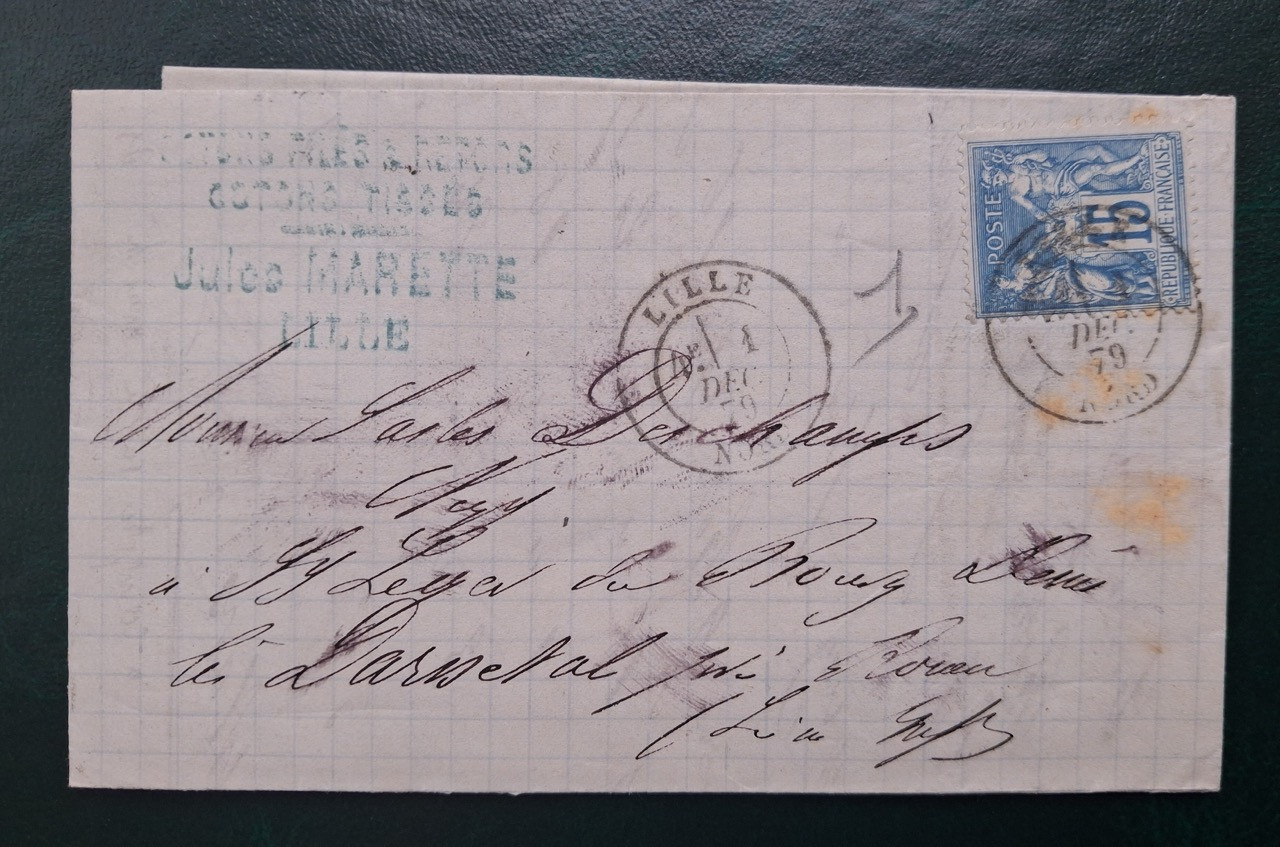 COTONS FILÉS & RETORS
COTONS TISSÉS
Jules MARETTE
LILLE
POSTE
15
RÉPUBLIQUE FRANÇAISE
LILLE
1
DEC.
79
NORD
DEC.
79
NORD
1
Monsieur Deschamps
à St Leger du Bourg Denis
lès Darnetal près Rouen